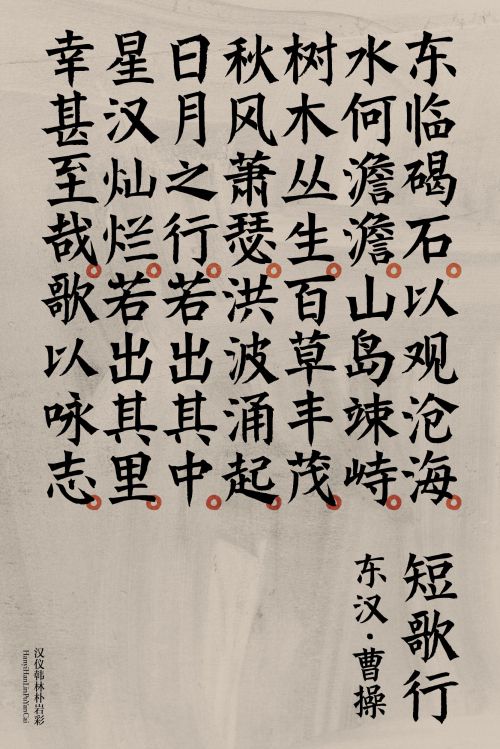 东临碣石以观沧海
水何澹澹山岛竦峙
树木丛生百草丰茂
秋风萧瑟洪波涌起
日月之行若出其中
星汉灿烂若出其里
幸甚至哉歌以咏志
短歌行
东汉·曹操
汉仪韩林朴岩彩
HanyiHanLinPuYanCai